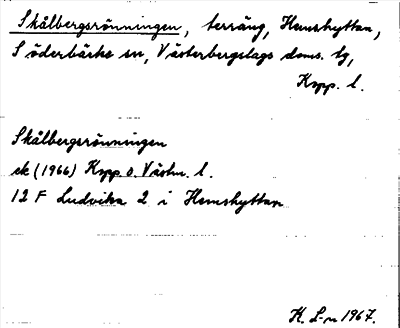 Skålbergsrönningen, terräng, Hemshyttan,
Söderbärke sn, Västerbergslags doms. tg,
Kopp. l.
Skålbergsrönningen
ek (1966) Kopp o. Västm. l.
12 F Ludvika 2 i Hemshyttan
K. L-n 1967.